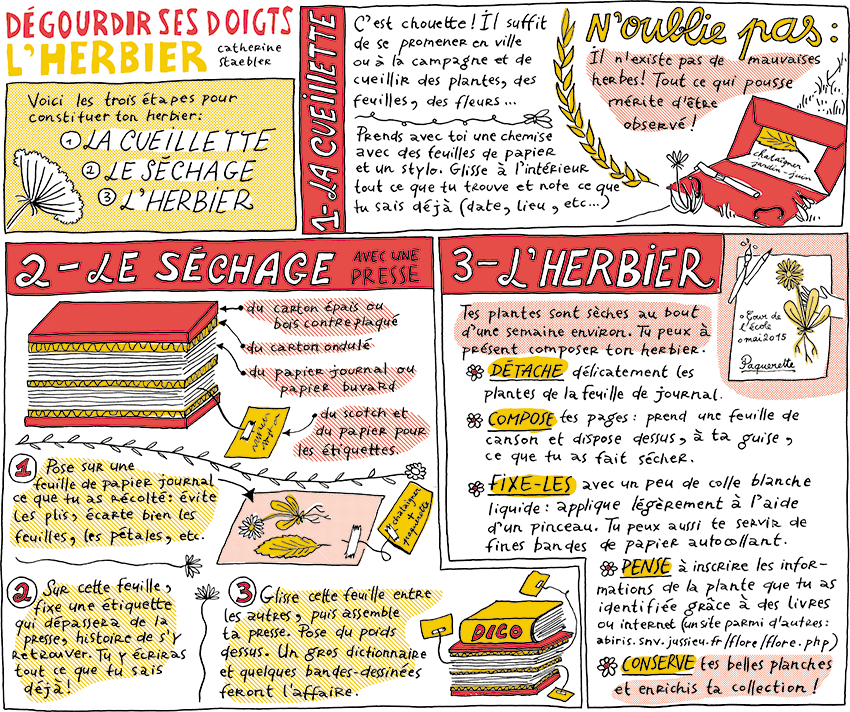 DÉGOURDIR SES DOIGTS
L'HERBIER
catherine
staebler
Voici les trois étapes pour
constituer ton herbier:
1 LA CUEILLETTE
2 LE SÉCHAGE
3 L'HERBIER
1-LA CUEILLETTE
C'est chouette! Il suffit
de se promener en ville
ou à la campagne et de
cueillir des plantes, des
feuilles, des fleurs...
Prends avec toi une chemise
avec des feuilles de papier
et un stylo. Glisse à l'intérieur
tout ce que tu trouve et note ce que
tu sais déjà (date, lieu, etc...)
N'oublie pas:
Il n'existe pas de mauvaises
herbes! Tout ce qui pousse
mérite d'être
observé!
chataigner
jardin-juin
2-LE SÉCHAGE AVEC UNE
PRESSE
du carton épais ou
bois contreplaqué
du carton ondulé
du papier journal ou
papier buvard
du scotch et
du papier pour
les étiquettes.
1 Pose sur une
feuille de papier journal
ce que tu as récolté: évite
les plis, écarte bien les
feuilles, les pétales, etc.
chataigner
+
paquerette
2 Sur cette feuille,
fixe une étiquette
qui dépassera de la
presse, histoire de s'y
retrouver. Tu y écriras
tout ce que tu sais
déjà!
3 Glisse cette feuille entre
les autres, puis assemble
ta presse. Pose du poids
dessus. Un gros dictionnaire
et quelques bandes-dessinées
feront l'affaire.
DICO
3-L'HERBIER
Tes plantes sont sèches au bout
d'une semaine environ. Tu peux à
présent composer ton herbier.
DÉTACHE délicatement les
plantes de la feuille de journal.
COMPOSE tes pages: prend une feuille de
canson et dispose dessus, à ta guise,
ce que tu as fait sécher.
FIXE-LES avec un peu de colle blanche
liquide: applique légèrement à l'aide
d'un pinceau. Tu peux aussi te servir de
fines bandes de papier autocollant.
PENSE à inscrire les infor-
mations de la plante que tu as
identifiée grâce à des livres
ou internet (un site parmi d'autres:
abiris.snv.jussieu.fr/flore/flore.php)
CONSERVE tes belles planches
et enrichis ta collection!
Cour de
l'école
mai 2015
Paquerette